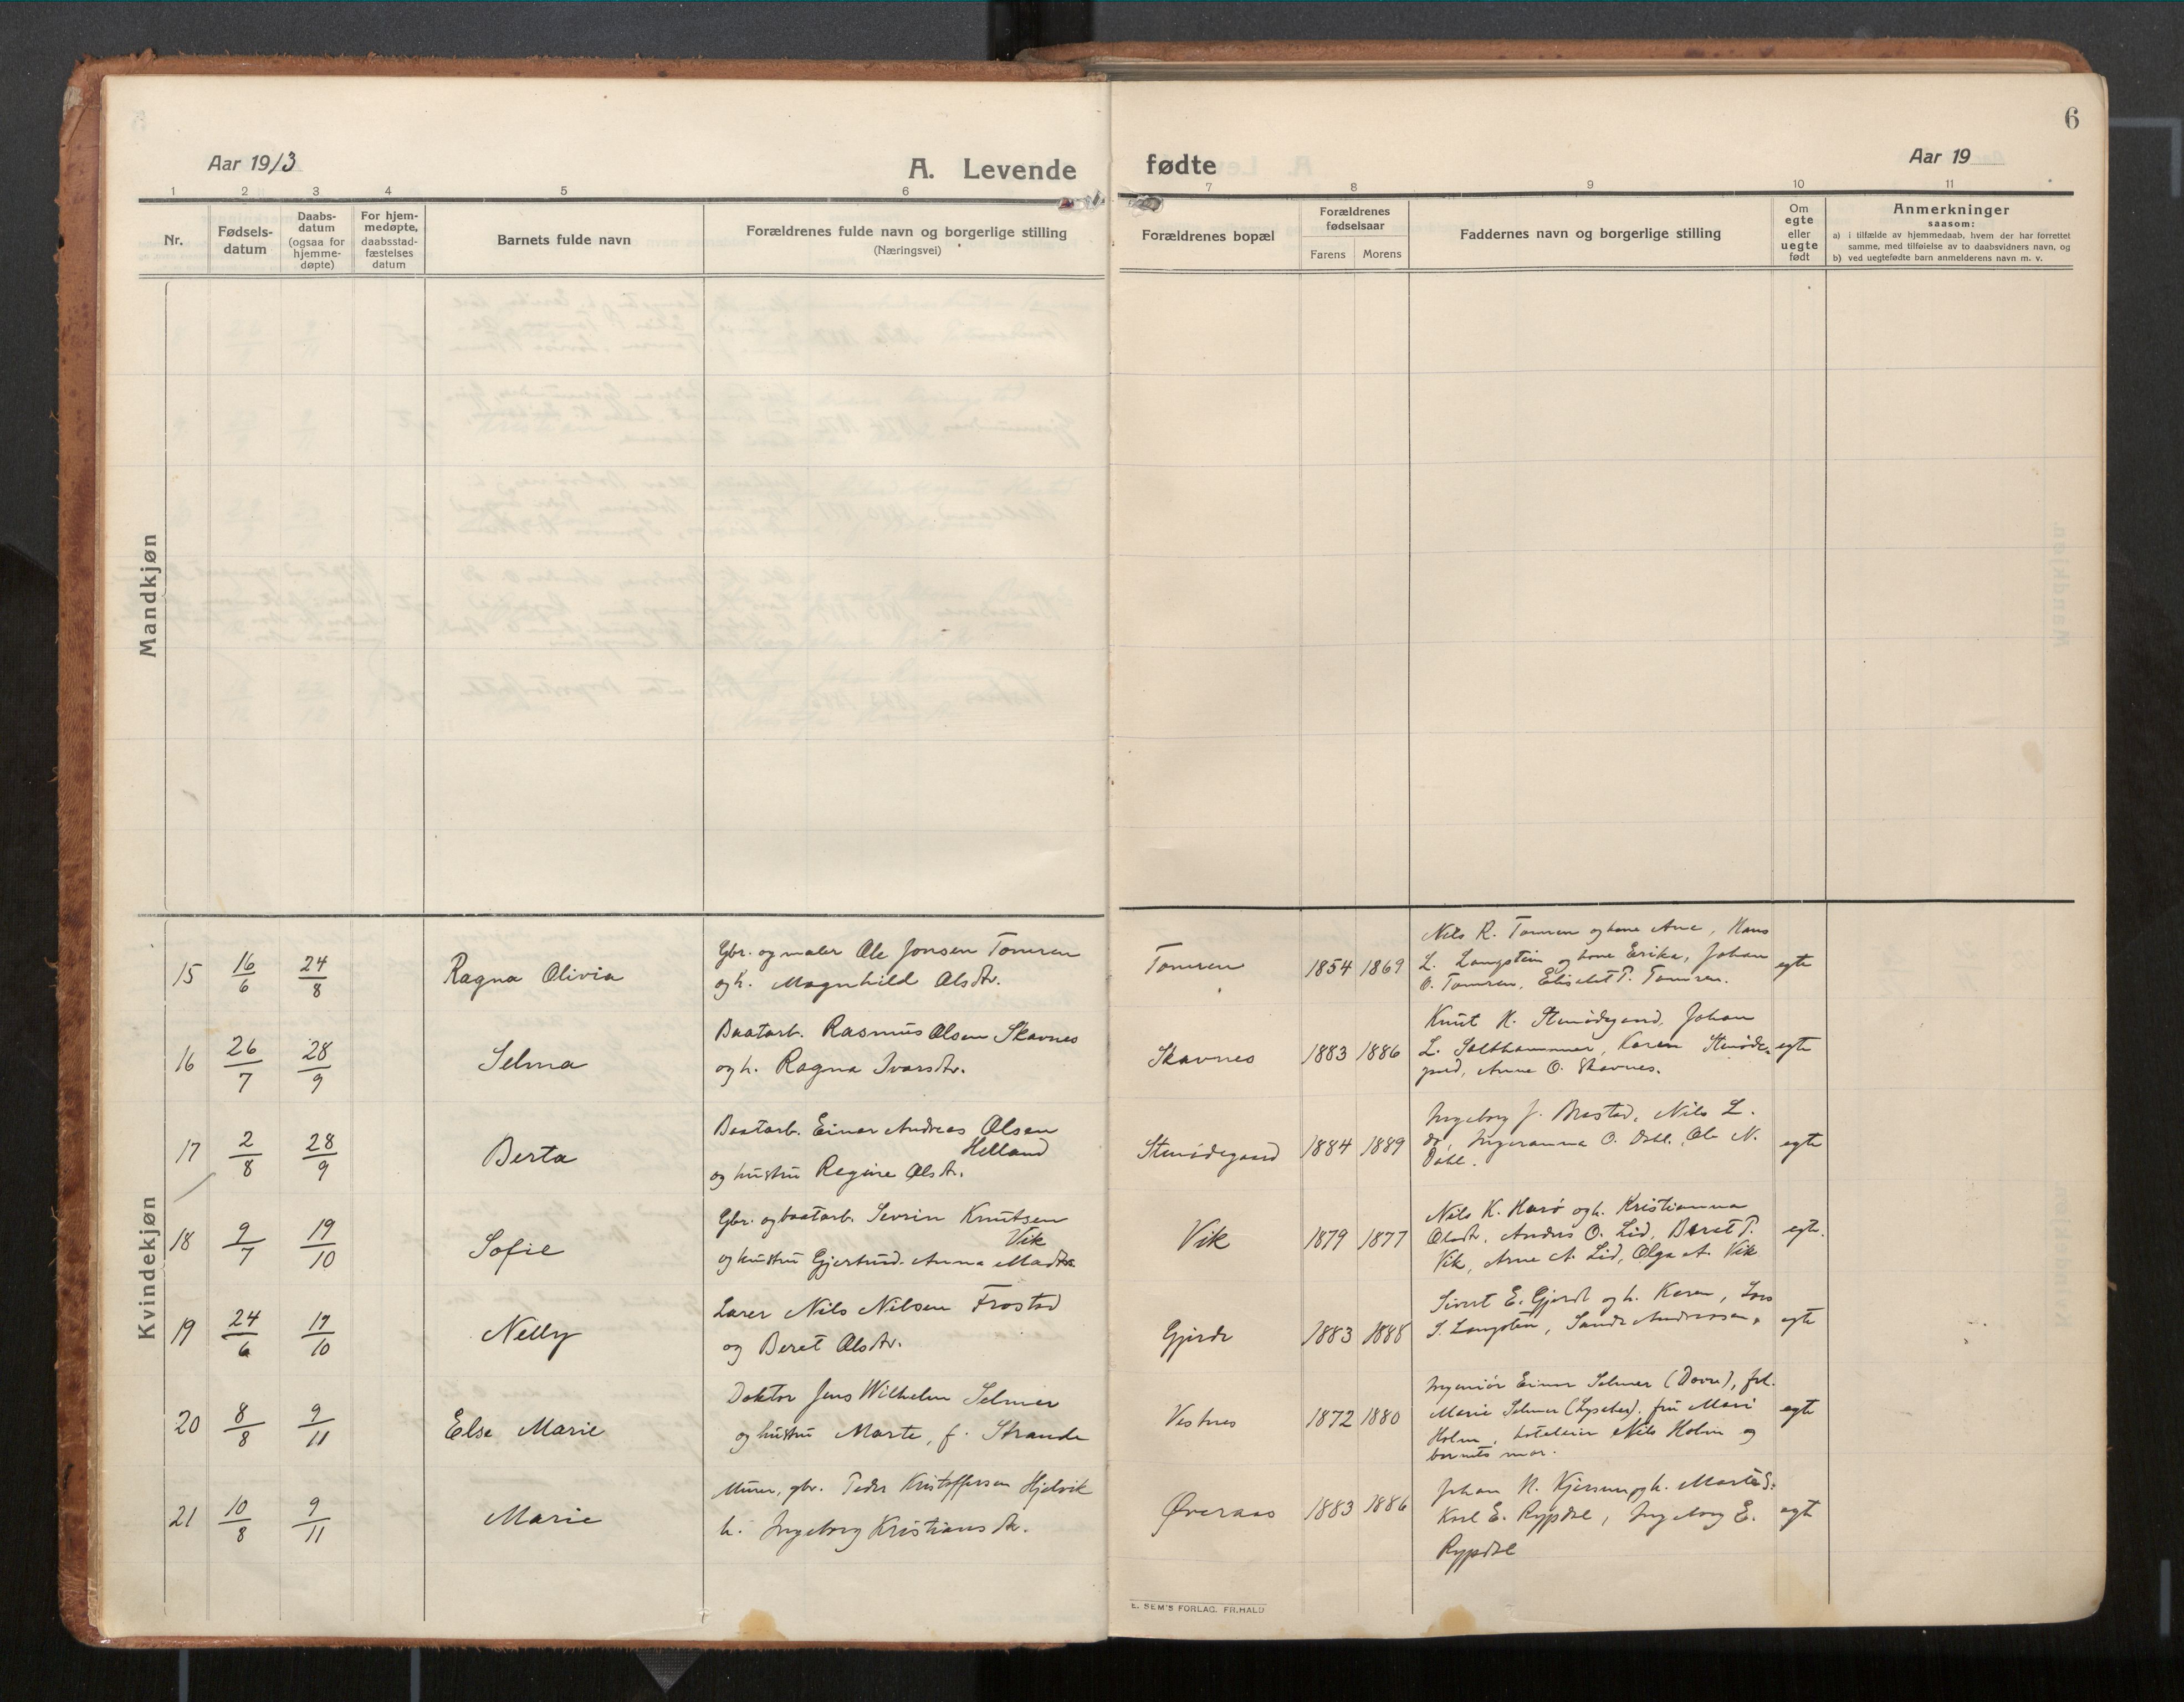 6
Aar 1913
A. Levende
fødte
Aar 19
1 2 3 4 5 6 7 8 9 10 11
Nr.
Fødsels-
datum
Daabs-
datum
(ogsaa for
hjemme-
døpte)
For hjem-
medøpte,
daabsstad-
fæstelses
datum
Barnets fulde navn
Forældrenes fulde navn og borgerlige stilling
(Næringsvei)
Forældrenes bopæl
Forældrenes
fødselsaar
Farens Morens
Faddernes navn og borgerlige stilling
Om
egte
eller
uegte
født
Anmerkninger
saasom:
a) i tilfælde av hjemmedaab, hvem der har forrettet
samme, med tilføielse av to daabsvidners navn, og
b) ved uegtefødte barn anmelderens navn m. v.
Mandkjøn
Kvindekjøn
15 16/6 24/8 Ragna Olivia
Gbr. og maler Ole Jonsen Tomren
og h. Magnhild Olsdtr.
Tomren 1854 1869
Nils R. Tomren og kone Ane, Hans
L. Langstein og kone Erika, Johan
O. Tomren, Elisabet P. Tomren.
egte
16 26/7 28/9 Selma
Baatarb. Rasmus Olsen Skavnes
og h. Ragna Ivarsdtr.
Skavnes 1883 1886
Knut K. Stenødegaard, Johan
L. Salthammer, Karen Stenøde-
gaard, Anna O. Skavnes.
egte
17 2/8 28/9 Berta
Baatarb. Einar Andreas Olsen
Helland
og hustru Regine Olsdtr.
Stenødegaard 1884 1889
Ingeborg J. Brastad, Nils L.
do, Ingeranna O. Dahl, Ole N.
Dahl.
egte
18 9/7 19/10 Sofie
Gbr. og baatarb. Sevrin Knutsen
Vik
og hustru Gjertrud Anna Madsdtr.
Vik 1879 1877
Nils K. Harø og h. Kristianna
Olsdtr, Anders O. Lid, Beret P.
Vik, Arne A. Lid, Olga A. Vik
egte.
19 24/6 19/10 Nelly
Lærer Nils Nilsen Frostad
og Beret Olsdtr.
Gjerde 1883 1888
Sivert E. Gjerde og h. Karen, Lars
S. Langsten, Andreassen,
egte
20 8/8 9/11 Else Marie
Doktor Jens Wilhelm Selmer
og hustru Marte, f. Strande
Vestnes 1872 1880
Ingeniør Einar Selmer (Dovre), frk.
Marie Selmer (Lysaker), fru Mari
Holm, hoteleier Nils Holm og
barnets mor.
egte
21 10/8 9/11 Marie
Murer, gbr. Peder Kristoffersen Hjelvik
h. Ingeborg Kristiansdtr.
Øveraas 1883 1886
Johan N. Kjersem og h. Marta S.
Karl E. Rypdal, Ingeborg E.
Rypdal
egte
E. SEM'S FORLAG. FR.HALD